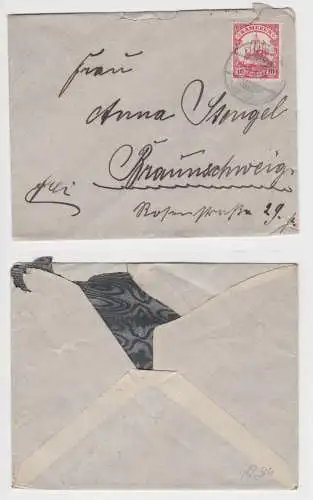 KAMERUN
10 10
Frau
Anna Stengel
Braunschweig
frei
Rosenstraße 29.